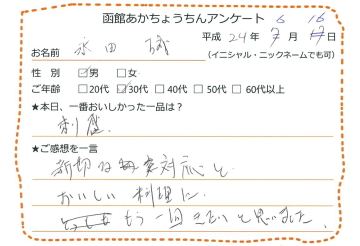 函館あかちょうちんアンケート
6 16
平成 24年 7月 17日
お名前 永田 誠
(イニシャル・ニックネームでも可)
性 別 ☑男 □女
ご年齢 □20代 ☑30代 □40代 □50代 □60代以上
★本日、一番おいしかった一品は？
刺盛
★ご感想を一言
親切な対応と
おいしい料理に
もう一回きたいと思いました